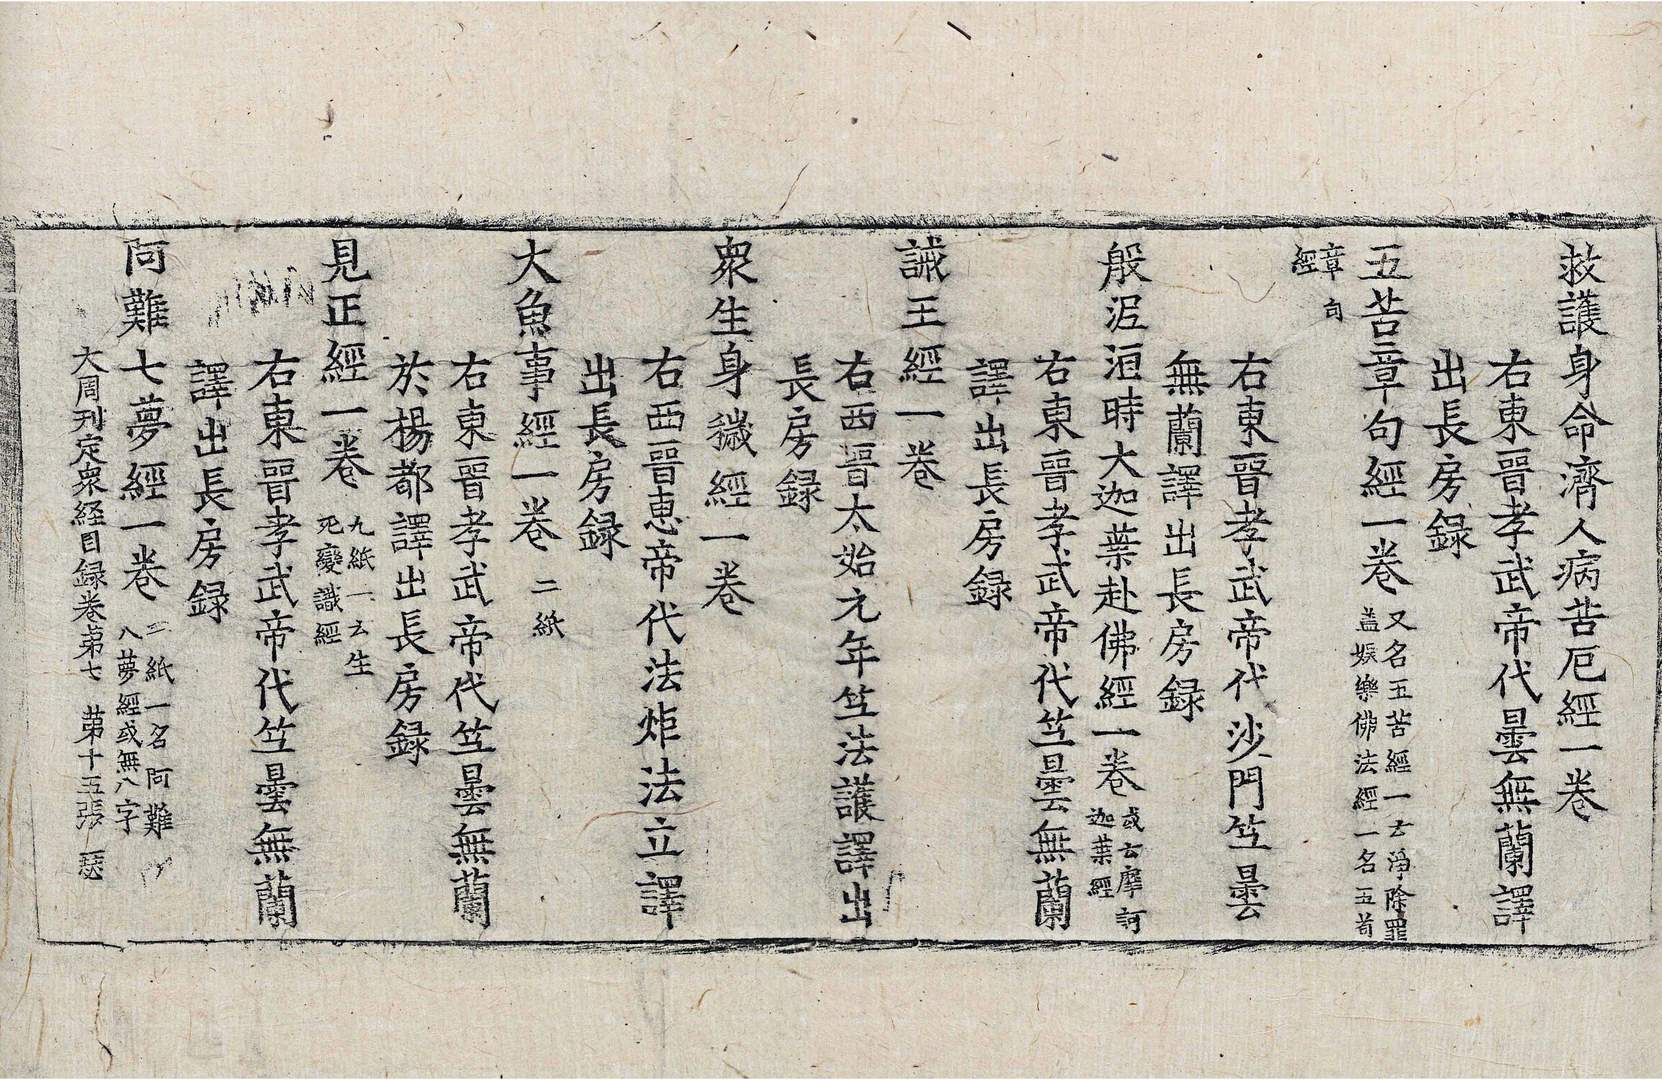 救護身命濟人病苦厄經一卷
右東晉孝武帝代曇無蘭譯
出長房録
五苦章句經一卷 又名五苦經一云淨除罪
蓋娛樂佛法經一名五苦
章句
經
右東晉孝武帝代沙門竺曇
無蘭譯出長房録
般泥洹時大迦葉赴佛經一卷 或云摩訶
迦葉經
右東晉孝武帝代竺曇無蘭
譯出長房録
誡王經一卷
右西晉太始元年竺法護譯出
長房録
衆生身穢經一卷
右西晉惠帝代法炬法立譯
出長房録
大魚事經一卷 二紙
右東晉孝武帝代竺曇無蘭
於楊都譯出長房録
見正經一卷 九紙一云生
死變識經
右東晉孝武帝代竺曇無蘭
譯出長房録
阿難七夢經一卷 二紙一名阿難
八夢經或無八字
大周刊定衆経目録卷苐七 苐十五張